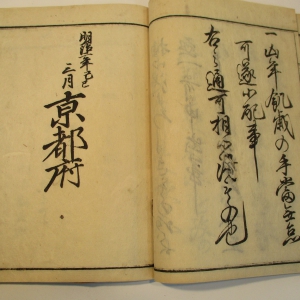 一凶年飢歳の手當無怠
可遂心配事
右之通可相心得もの也
明治二年己巳
三月
京都府